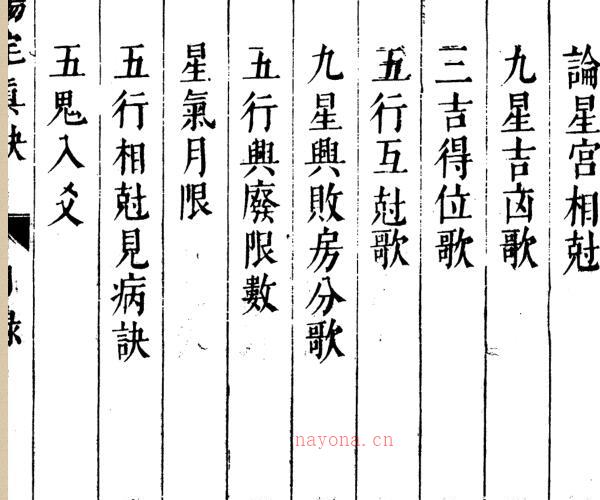 論星宫相尅
九星吉凶歌
三吉得位歌
五行互尅歌
九星興敗房分歌
五行興廢限數
星氣月限
五行相尅見病訣
五鬼入爻
陽宅真訣
目録
nayona.cn